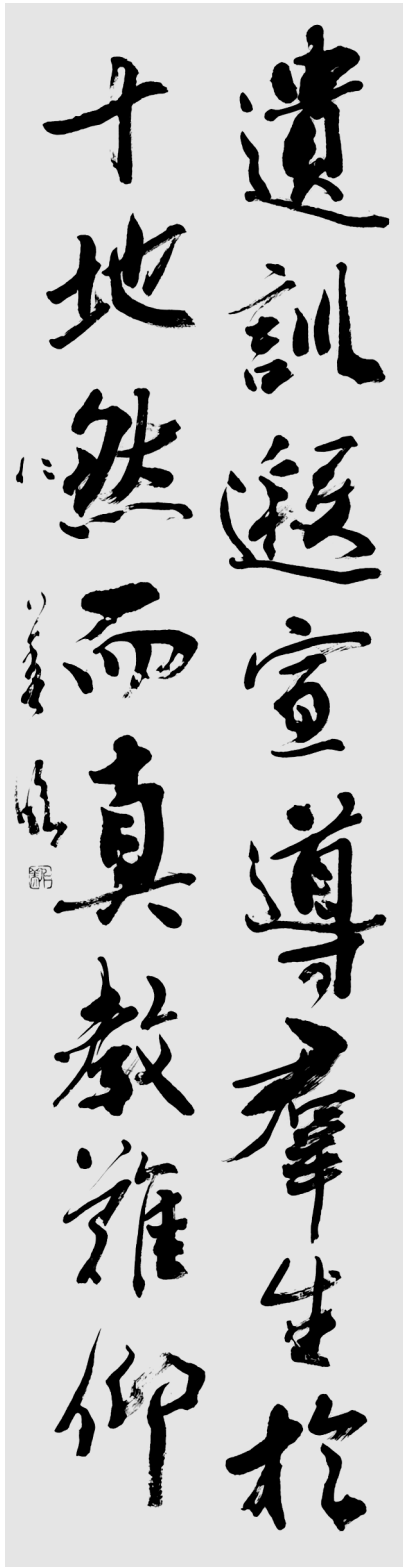 遺訓遐宣導羣生於
十地然而真教難仰
臨